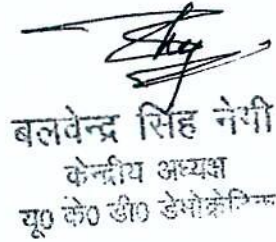 बलवेन्द्र सिंह नेगी
केन्द्रीय अध्यक्ष
यू० के० डी० डेमोक्रेटिक